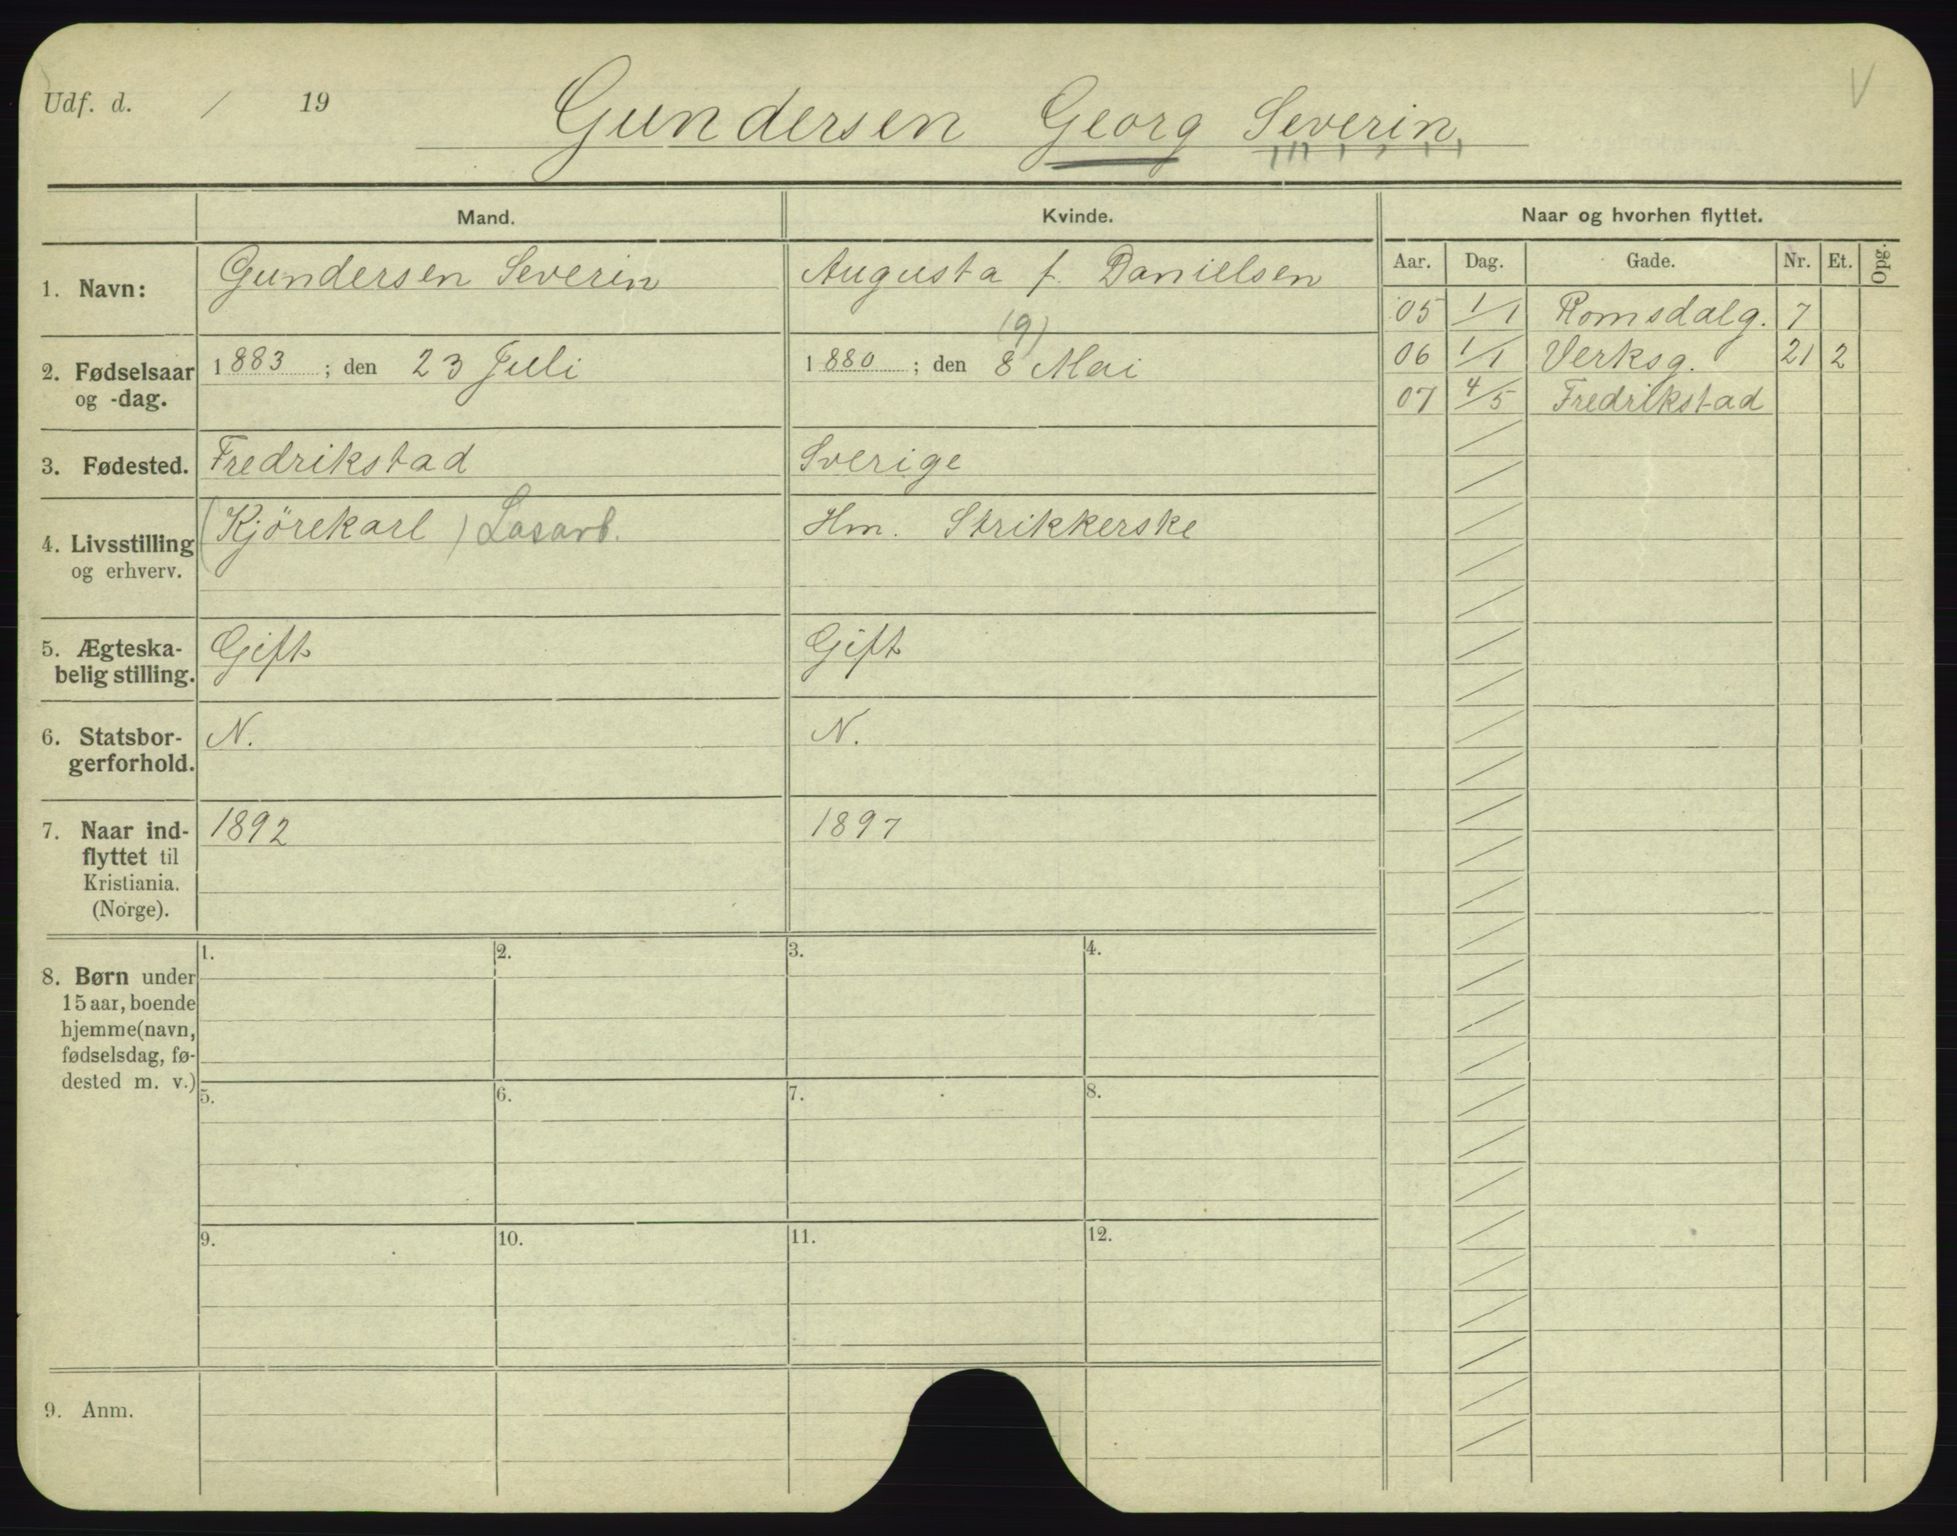 Udf. d. / 19
Gundersen Georg Severin
V
Mand. Kvinde. Naar og hvorhen flyttet.
Aar. Dag. Gade. Nr. Et. Opg.
1. Navn: Gundersen Severin Augusta f. Danielsen
05 1/1 Romsdalg. 7
06 1/1 Verksg. 21 2
07 4/5 Fredrikstad
(9)
2. Fødselsaar og -dag. 1883 ; den 23 Juli 1880 ; den 8 Mai
3. Fødested. Fredrikstad Sverige
4. Livsstilling og erhverv. (Kjörekarl) Losarb. Hm. Strikkerske
5. Ægteskabelig stilling. Gift Gift
6. Statsborgerforhold. N. N.
7. Naar indflyttet til Kristiania. (Norge). 1892 1897
8. Børn under 15 aar, boende hjemme (navn, fødselsdag, fødested m. v.)
1. 2. 3. 4.
5. 6. 7. 8.
9. 10. 11. 12.
9. Anm.